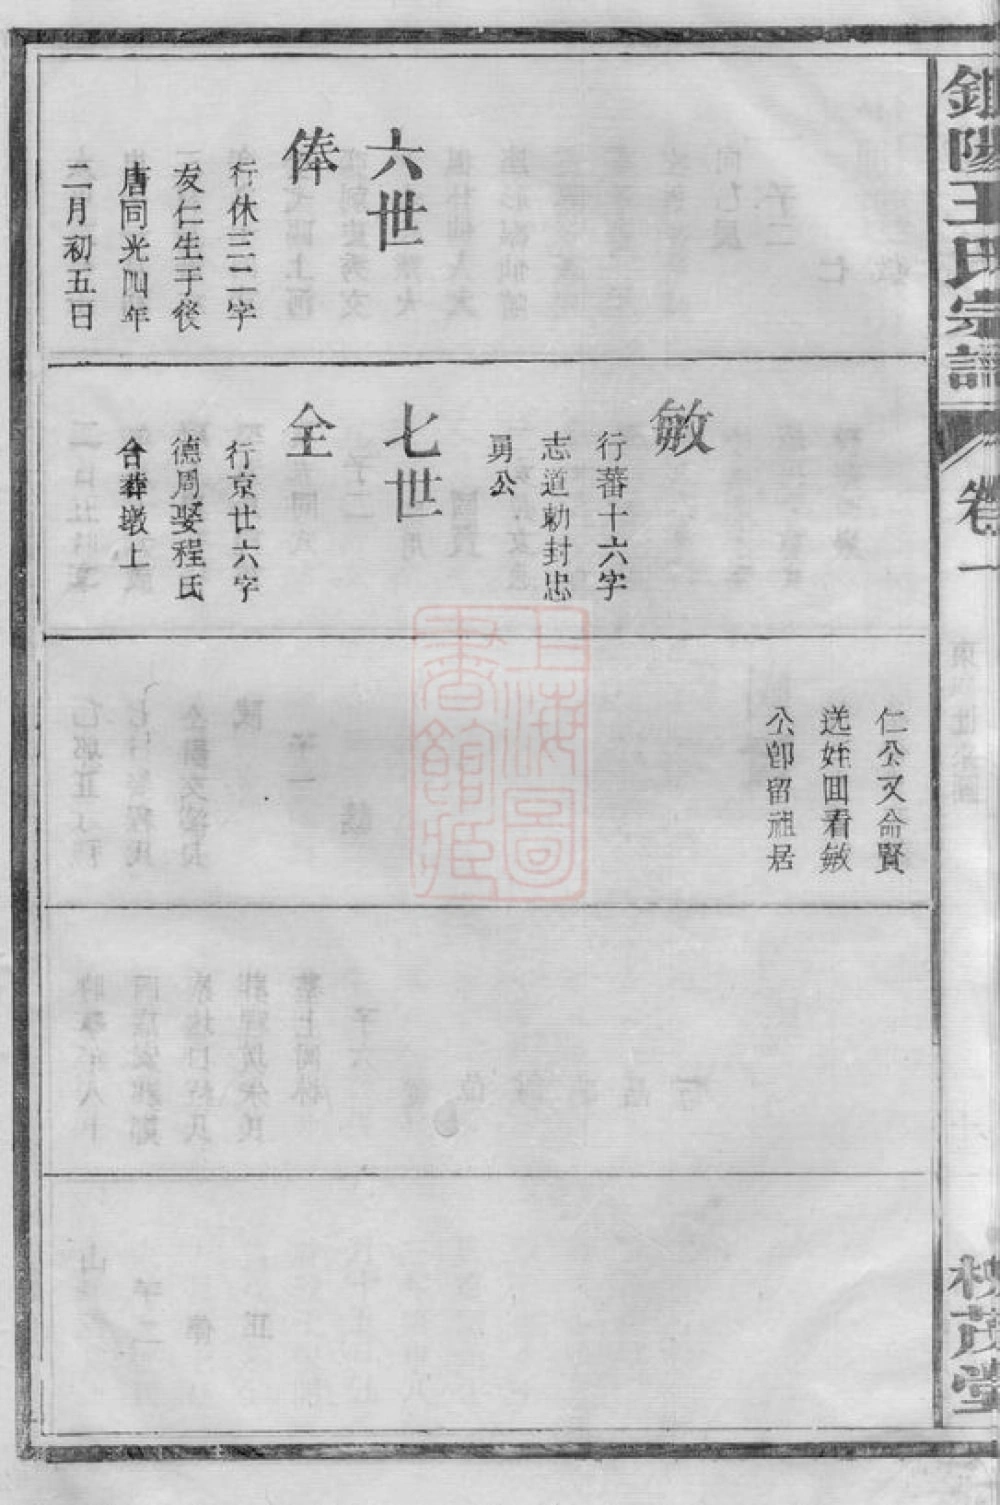 王氏宗譜
卷一
茂堂
六世
俸
行休三二字
友仁生于後
唐同光四年
二月初五日
敏
行蕃十六字
志道勅封忠
勇公
七世
全
行京廿六字
德周娶程氏
合葬墩上
仁公又命賢
送姪囬看敏
公卽留祖居
上海圖書館藏